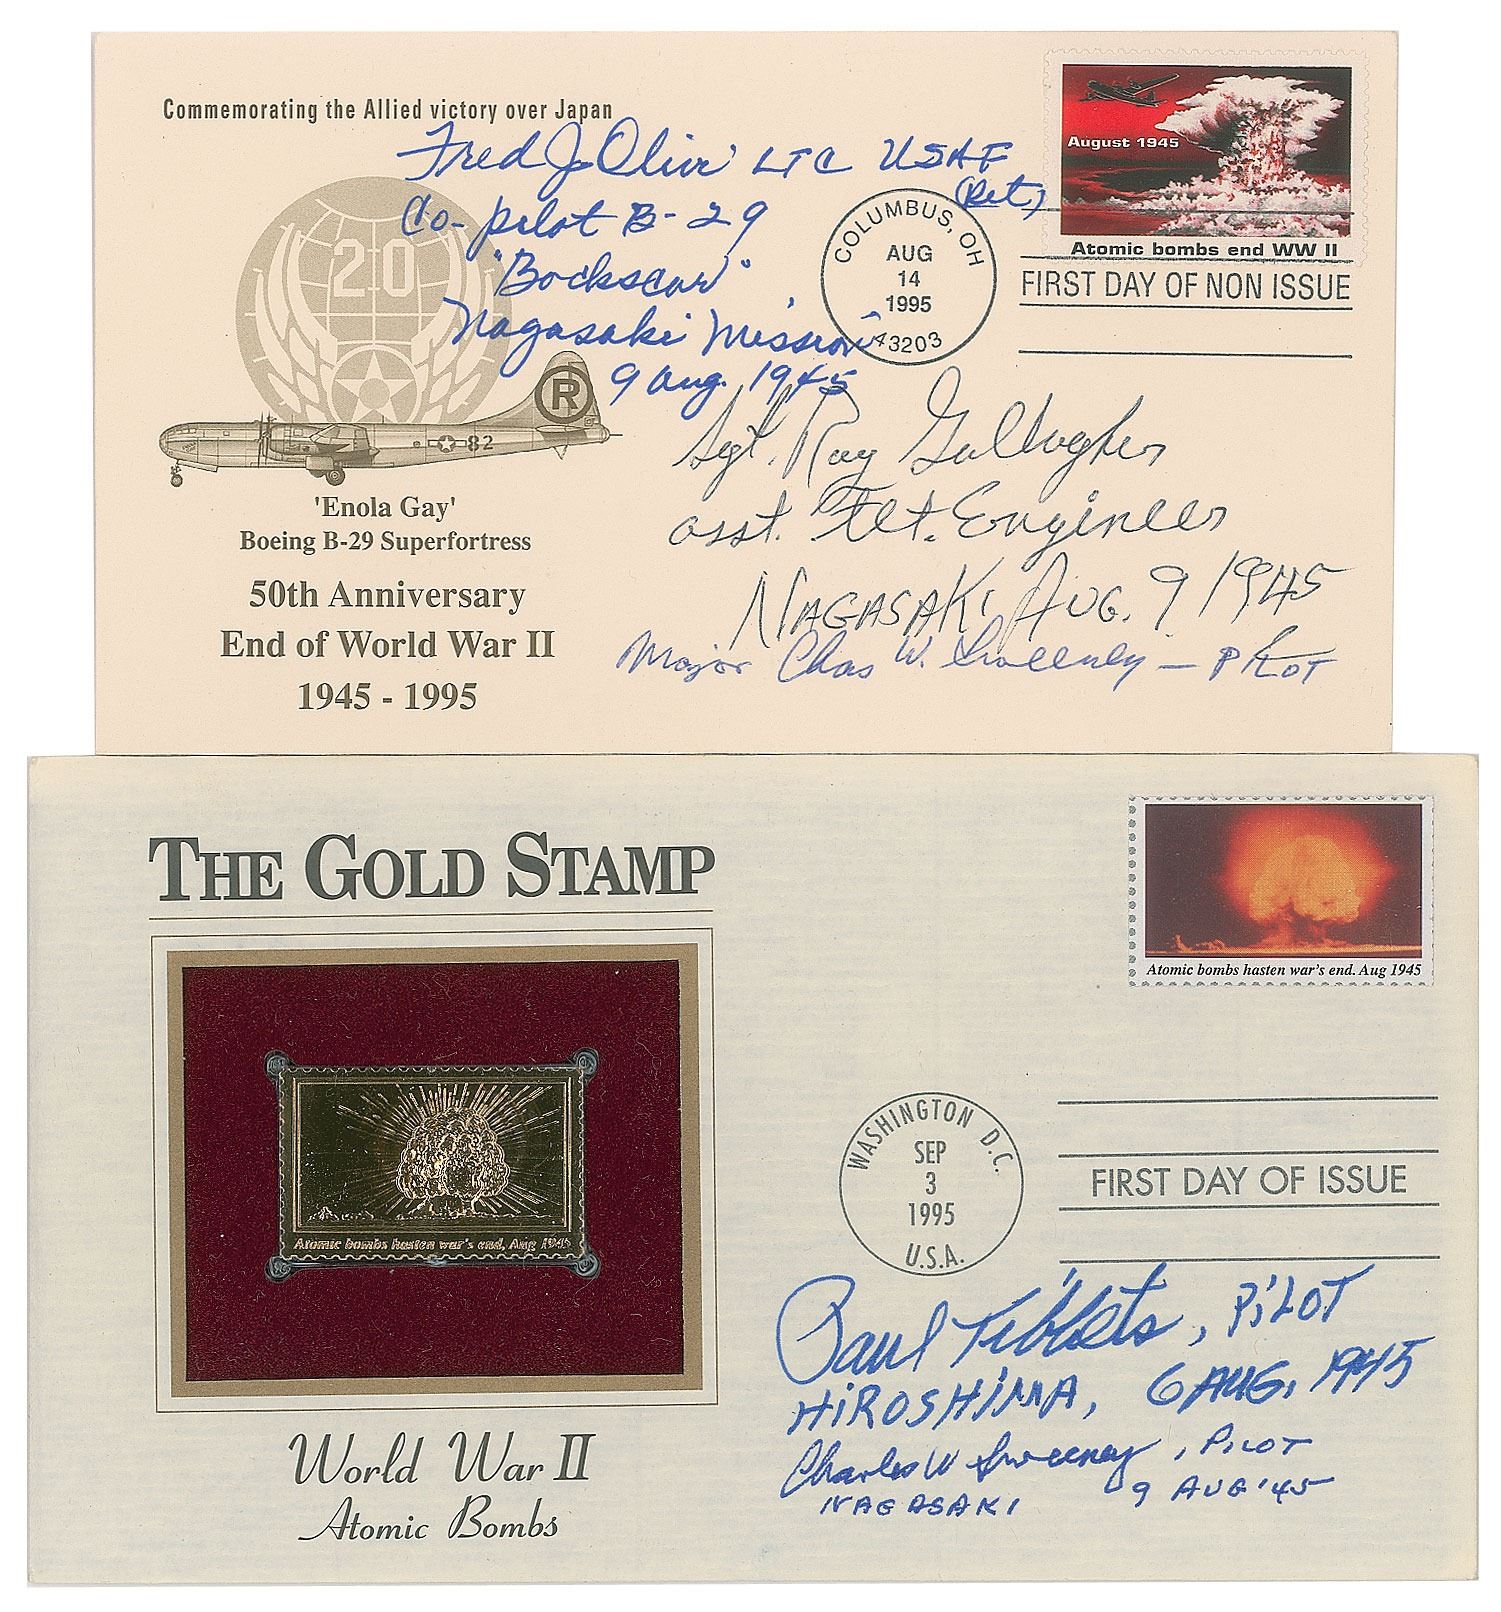 Commemorating the Allied victory over Japan
Fred J Olivi LTC USAF
(Ret)
Co-pilot B-29
"Bockscar"
Nagasaki Mission
9 Aug. 1945
20
August 1945
Atomic bombs end WW II
COLUMBUS, OH
AUG
14
1995
43203
FIRST DAY OF NON ISSUE
R
82
'Enola Gay'
Boeing B-29 Superfortress
50th Anniversary
End of World War II
1945 - 1995
Sgt. Ray Gallagher
asst. Flt. Engineer
NAGASAKI AUG. 9 1945
Major Chas W. Sweeney - PILOT
THE GOLD STAMP
Atomic bombs hasten war's end, Aug 1945
World War II
Atomic Bombs
Atomic bombs hasten war's end. Aug 1945
WASHINGTON D.C.
SEP
3
1995
U.S.A.
FIRST DAY OF ISSUE
Paul Tibbets, PILOT
HIROSHIMA, 6 AUG, 1945
Charles W Sweeney, PILOT
NAGASAKI 9 AUG '45